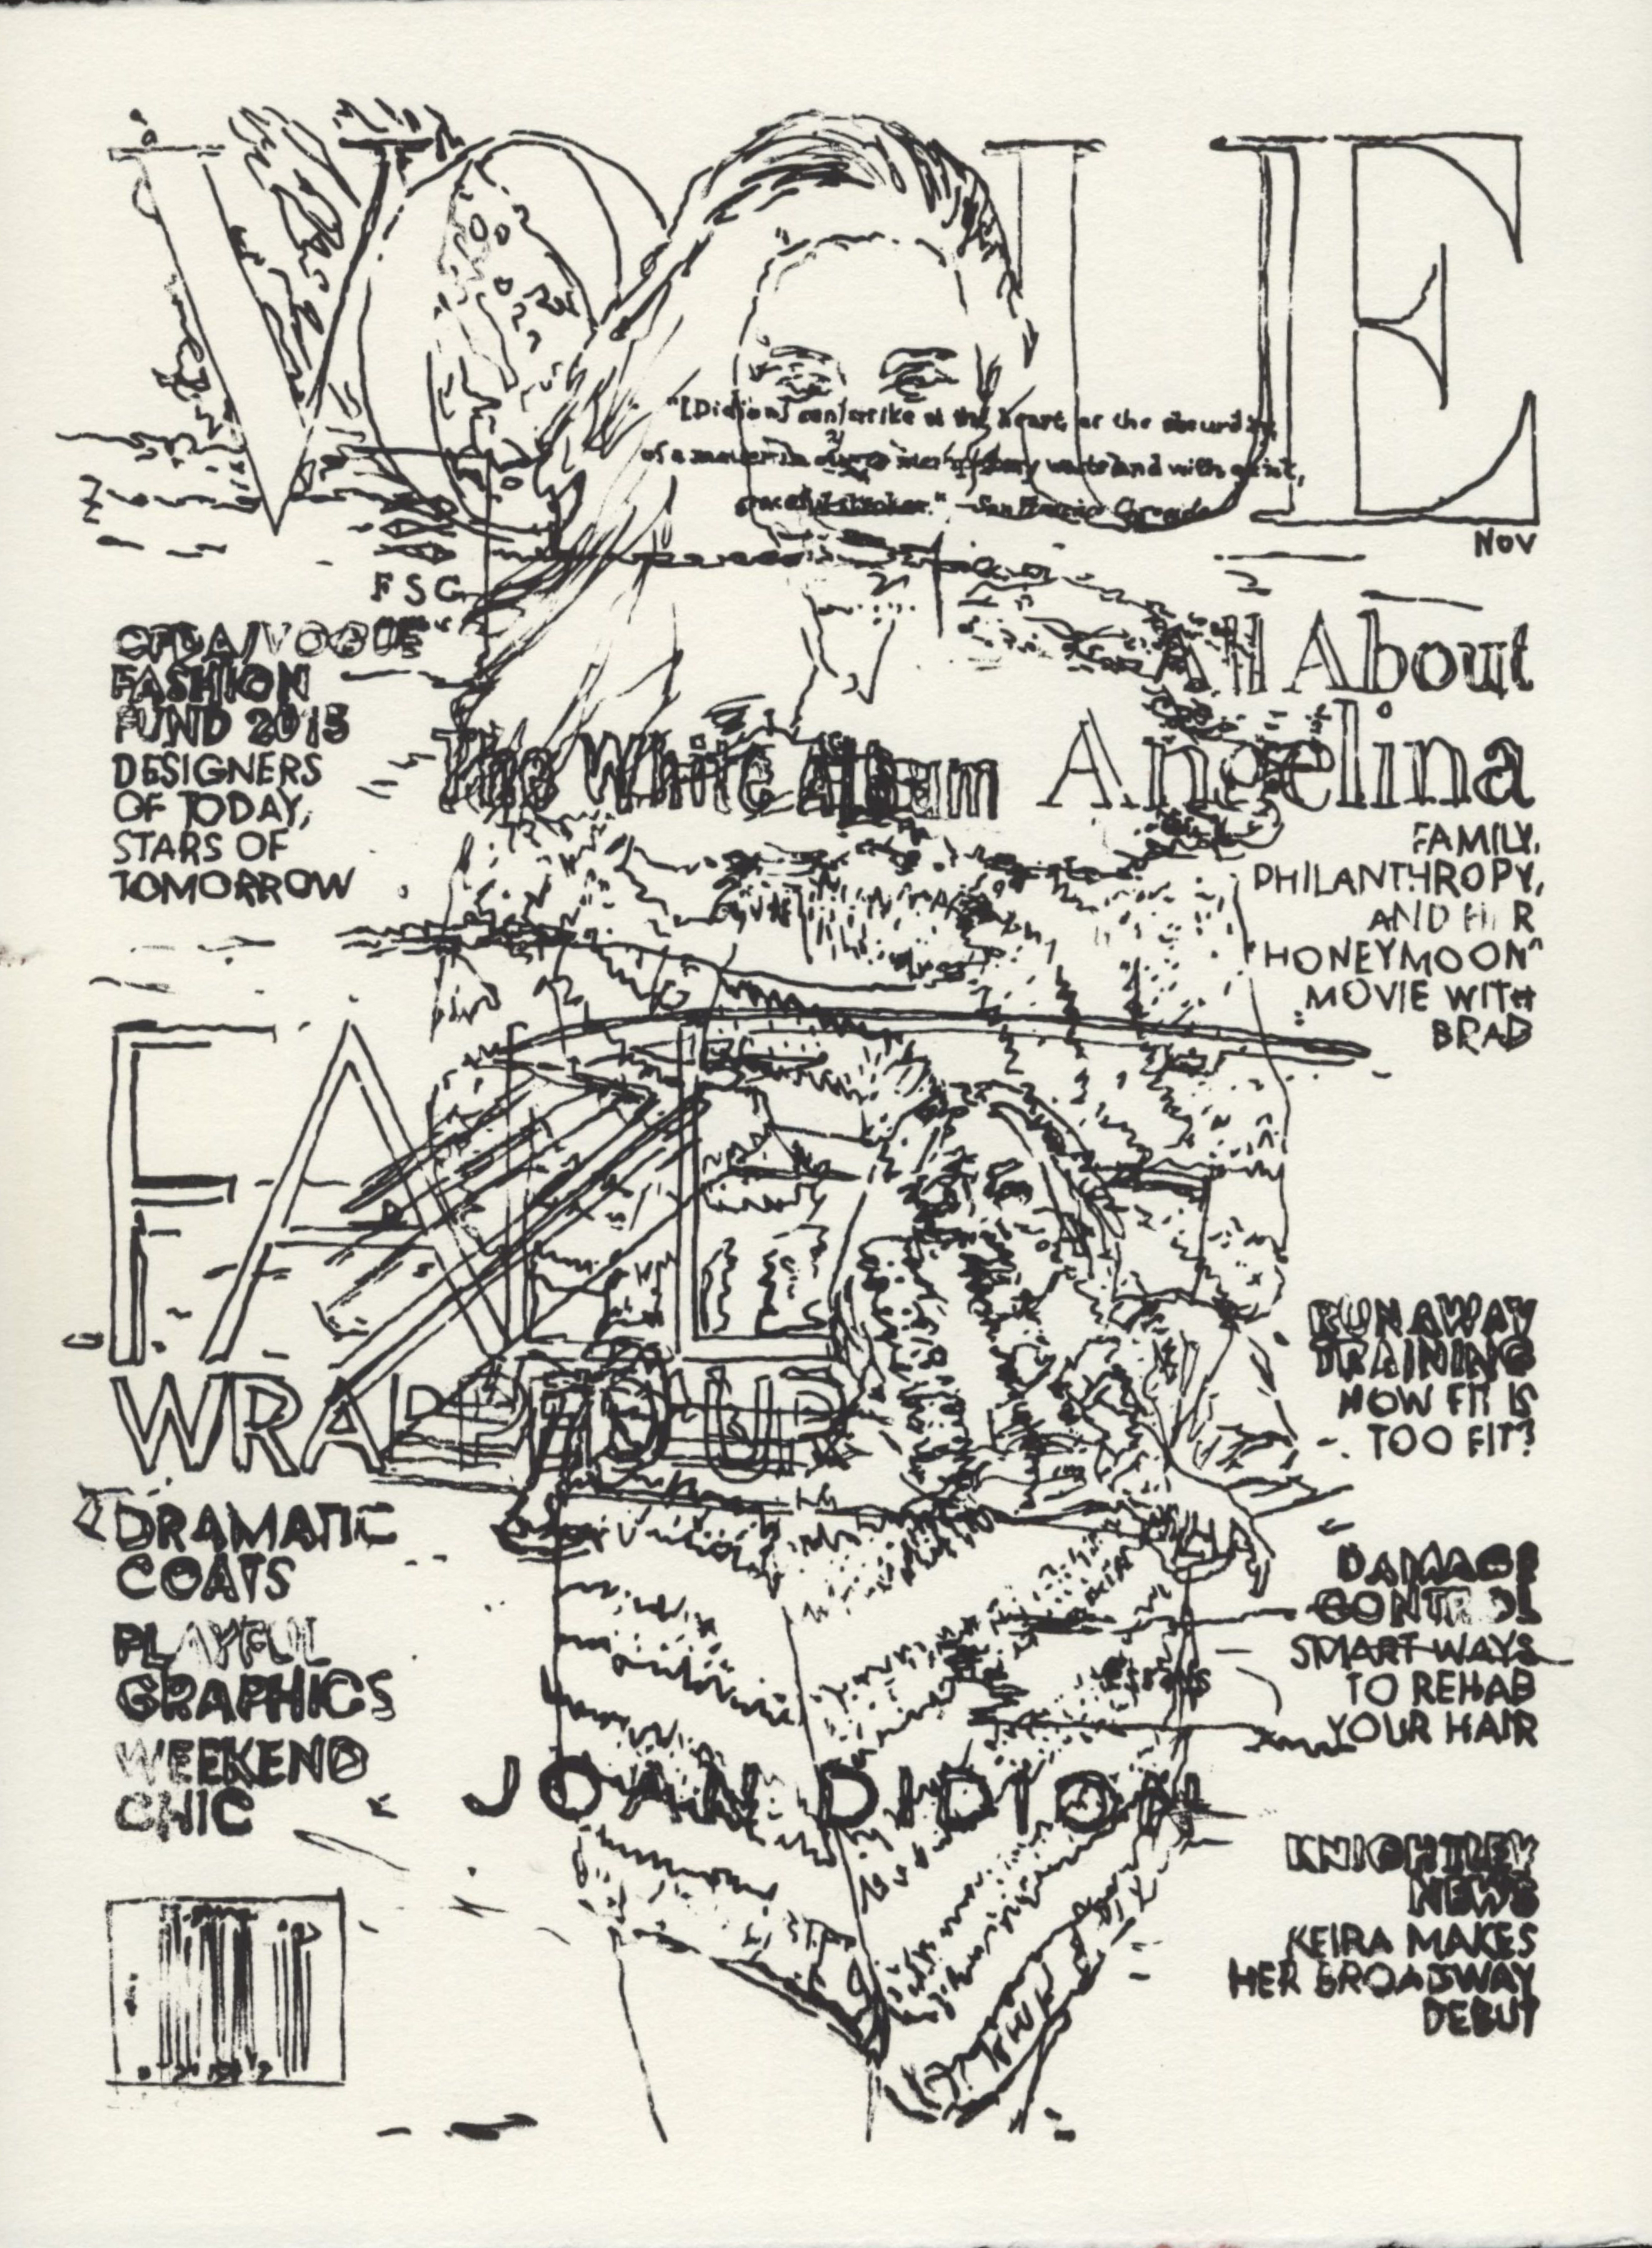 VOGUE
"[Didion] can strike at the heart, or the absurdity,
of a matter in our contemporary wasteland with quick,
graceful strokes." —San Francisco Chronicle
NOV
FSG
CFDA/VOGUE
FASHION
FUND 2015
DESIGNERS
OF TODAY,
STARS OF
TOMORROW
All About
Angelina
FAMILY,
PHILANTHROPY,
AND H R
"HONEYMOON"
MOVIE WITH
BRAD
The White Album
FALL
WRAPPED UP
DRAMATIC
COATS
PLAYFUL
GRAPHICS
WEEKEND
CHIC
RUNAWAY
TRAINING
HOW FIT IS
TOO FIT?
DAMAGE
CONTROL
SMART WAYS
TO REHAB
YOUR HAIR
Essays
JOAN DIDION
KNIGHTLEY
NEWS
KEIRA MAKES
HER BROADWAY
DEBUT